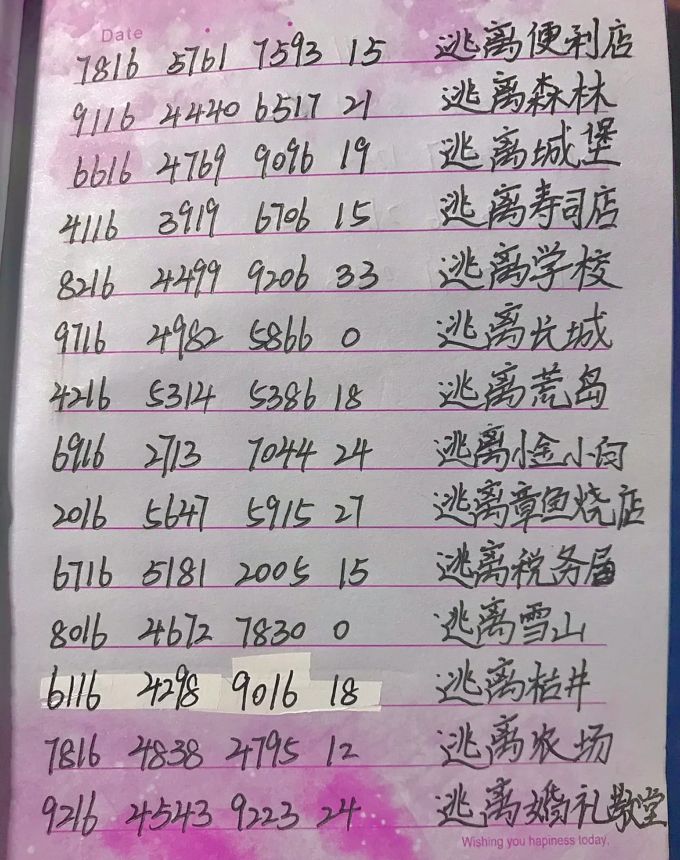 Date
7816 5761 7593 15 逃离便利店
9116 4440 6517 21 逃离森林
6616 4769 9096 19 逃离城堡
4116 3919 6706 15 逃离寿司店
8216 4499 9206 33 逃离学校
9716 4982 5866 0 逃离长城
4216 5314 5386 18 逃离荒岛
6916 2713 7044 24 逃离小金小白
2016 5647 5915 27 逃离章鱼烧店
6716 5181 2005 15 逃离税务局
8016 4672 7830 0 逃离雪山
6116 4298 9016 18 逃离枯井
7816 4838 4795 12 逃离农场
9216 4543 9223 24 逃离婚礼教堂
Wishing you hapiness today.